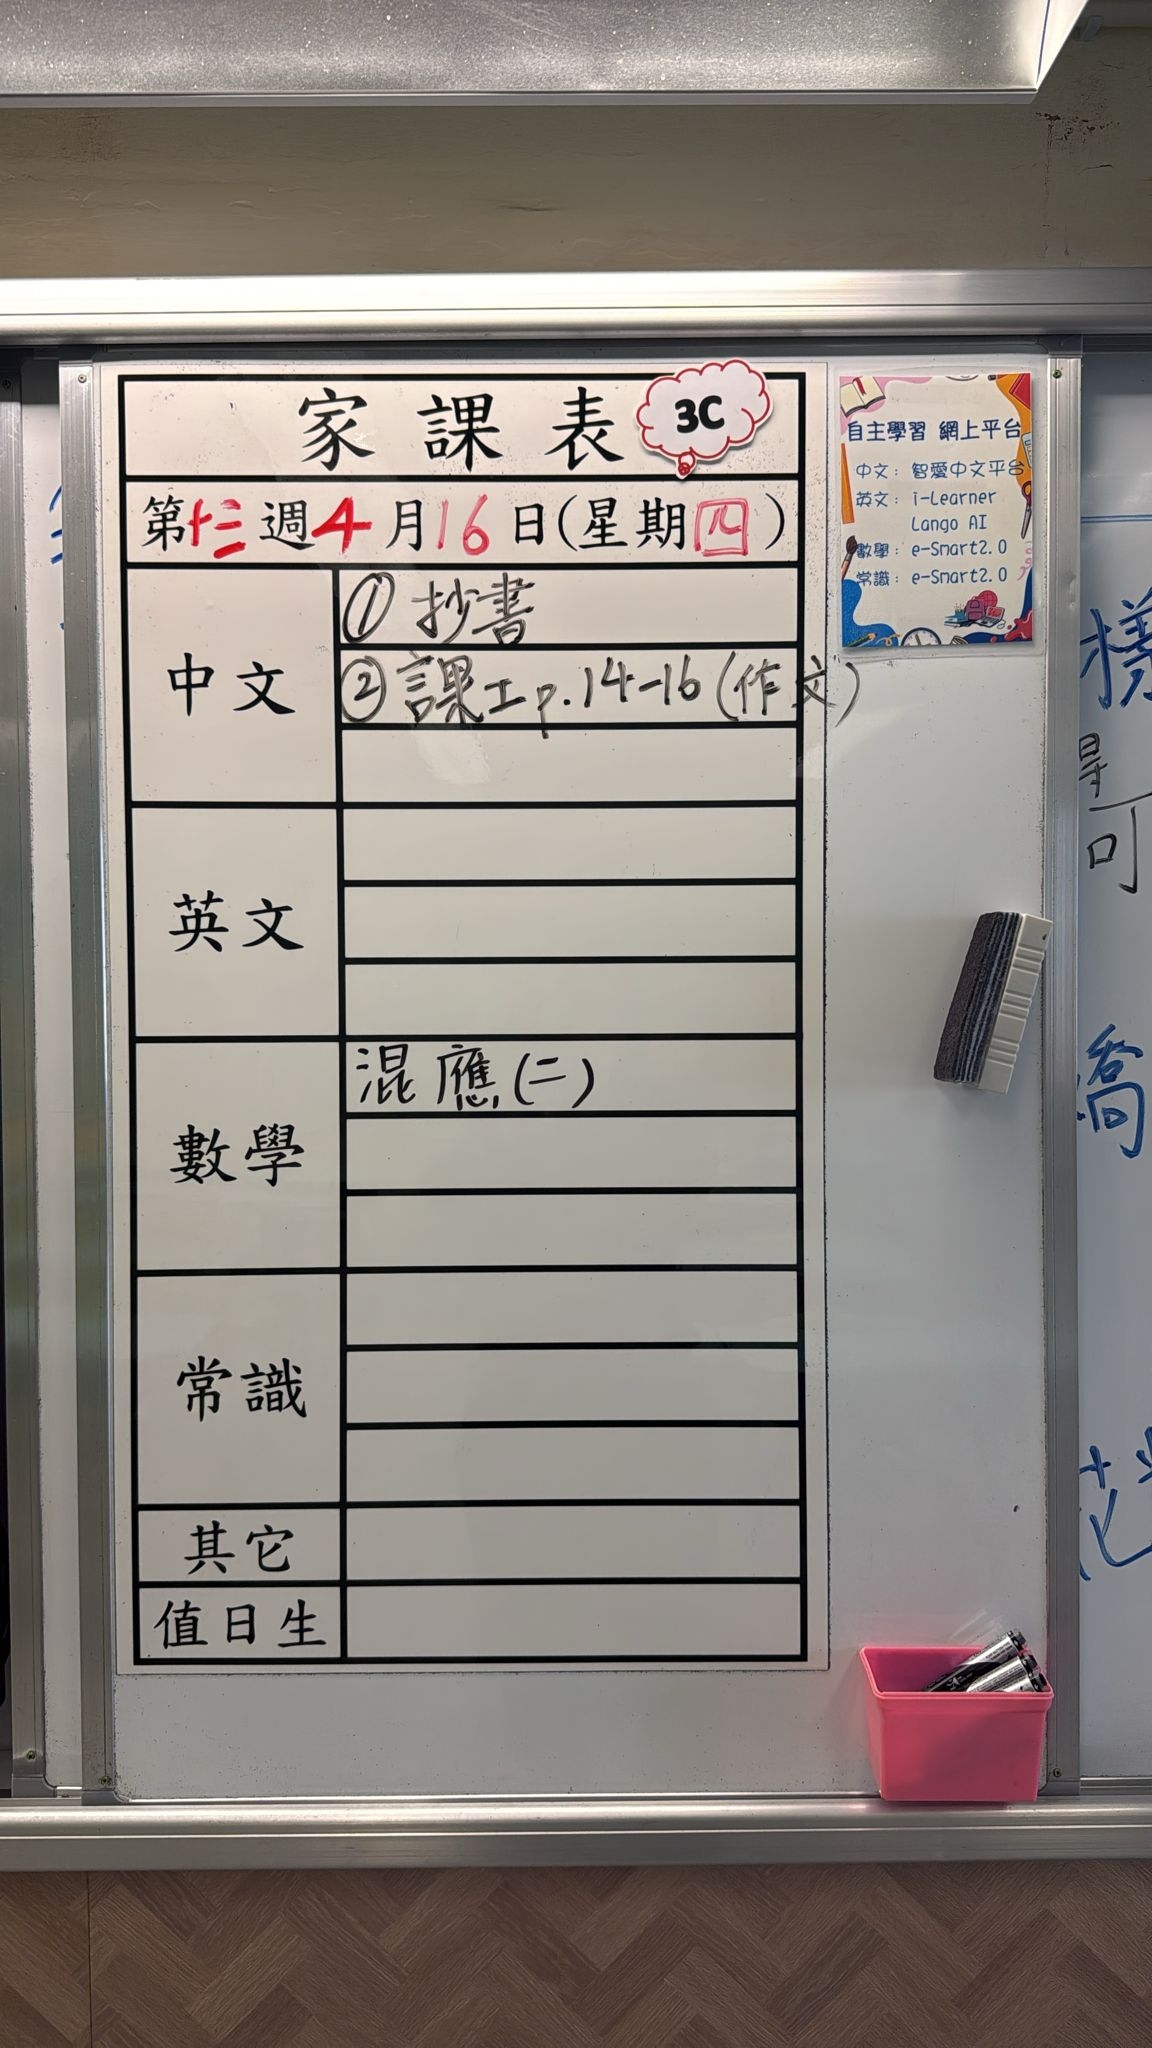 家課表 3C
第十三週4月16日(星期四)
中文
①抄書
②課工p.14-16(作文)
英文
數學
混應(二)
常識
其它
值日生
自主學習 網上平台
中文：智愛中文平台
英文：i-Learner
Lango AI
數學：e-Smart2.0
常識：e-Smart2.0